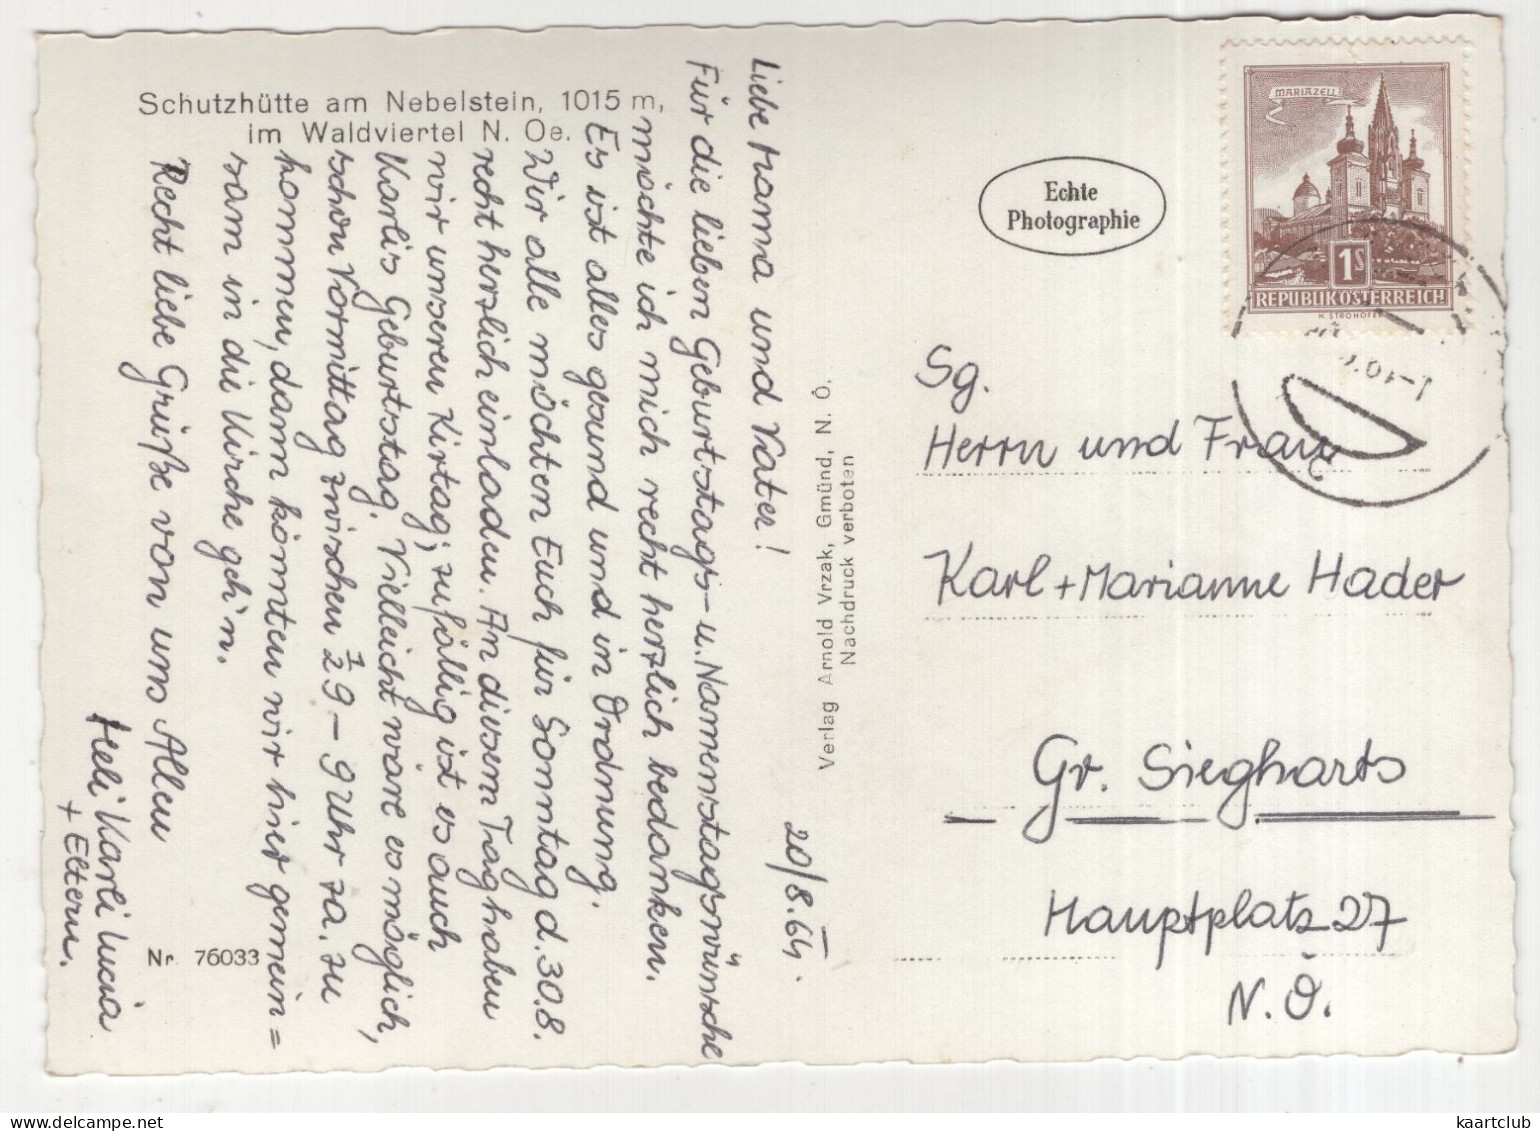 Schutzhütte am Nebelstein, 1015 m,
im Waldviertel N. Oe.
20/8.64.
Liebe Mama und Vater!
Für die lieben Geburtstags- u. Namenstagswünsche
möchte ich mich recht herzlich bedanken.
Es ist alles gesund und in Ordnung.
Wir alle möchten Euch für Sonntag d. 30.8.
recht herzlich einladen. An diesem Tag haben
wir unseren Kirtag; zufällig ist es auch
Karlis Geburtstag. Vielleicht wäre es möglich,
schon Vormittag zwischen 1/2 9 - 9 Uhr za. zu
kommen, dann könnten wir hier gemein=
sam in die Kirche geh'n.
Recht liebe Grüße von uns Allen
Heli Karli Lucia
+ Eltern.
Nr. 76033
Verlag Arnold Vrzak, Gmünd, N. Ö.
Nachdruck verboten
Echte
Photographie
MARIAZELL
1S
REPUBLIK ÖSTERREICH
H. STROHOFER
Sg.
Herrn und Frau
Karl + Marianne Hader
Gr. Siegharts
Hauptplatz 27
N.Ö.
kaartclub